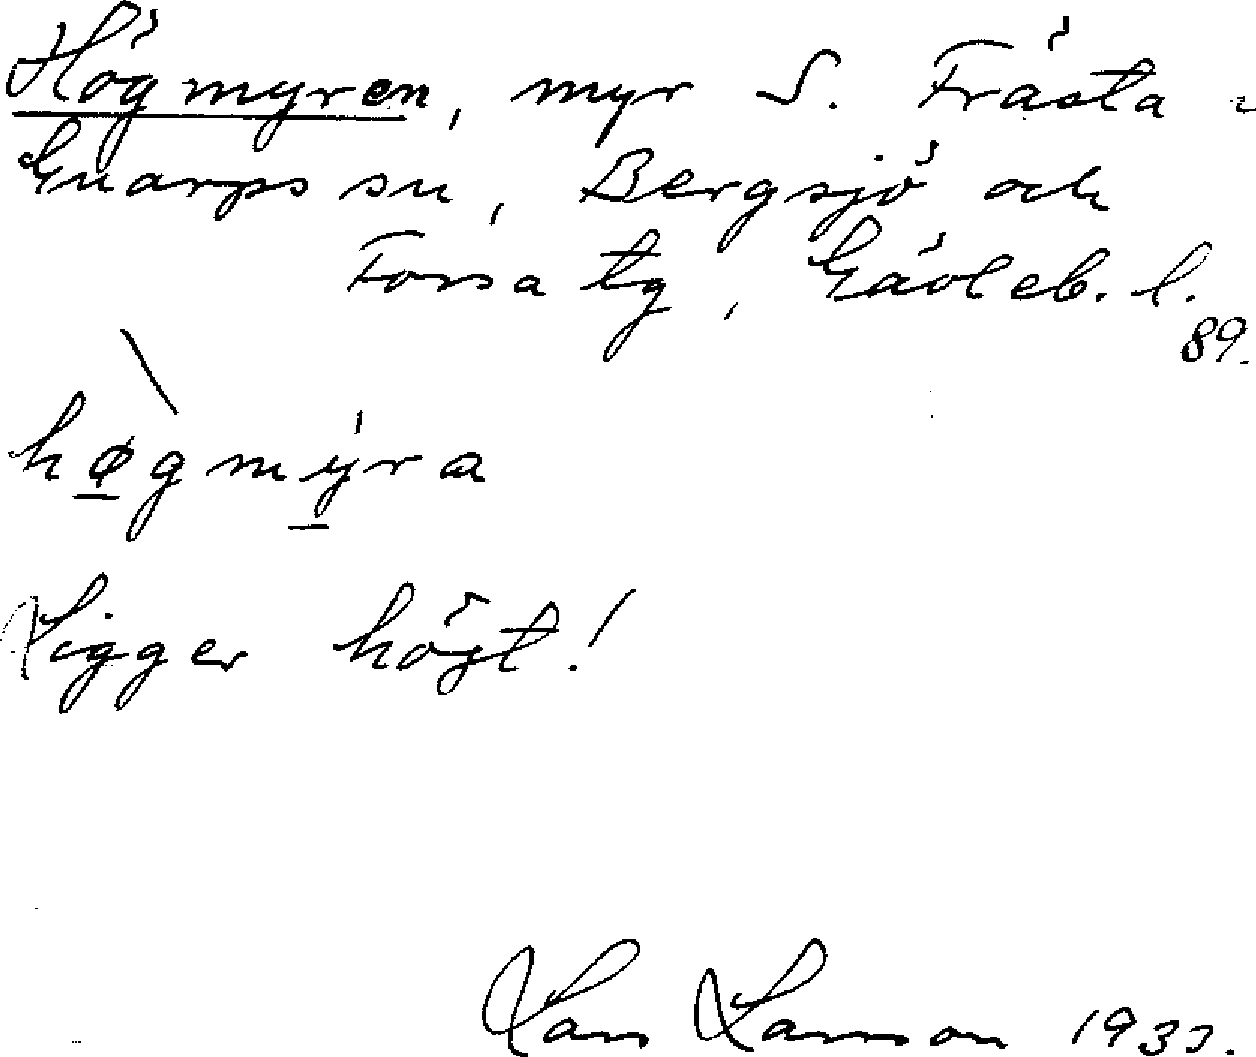 Högmyren, myr S. Frästa
Gnarps sn, Bergsjö och
Forsa tg, Gävleb. l.
89.
høgmyra
Ligger högt!
Lars Larsson